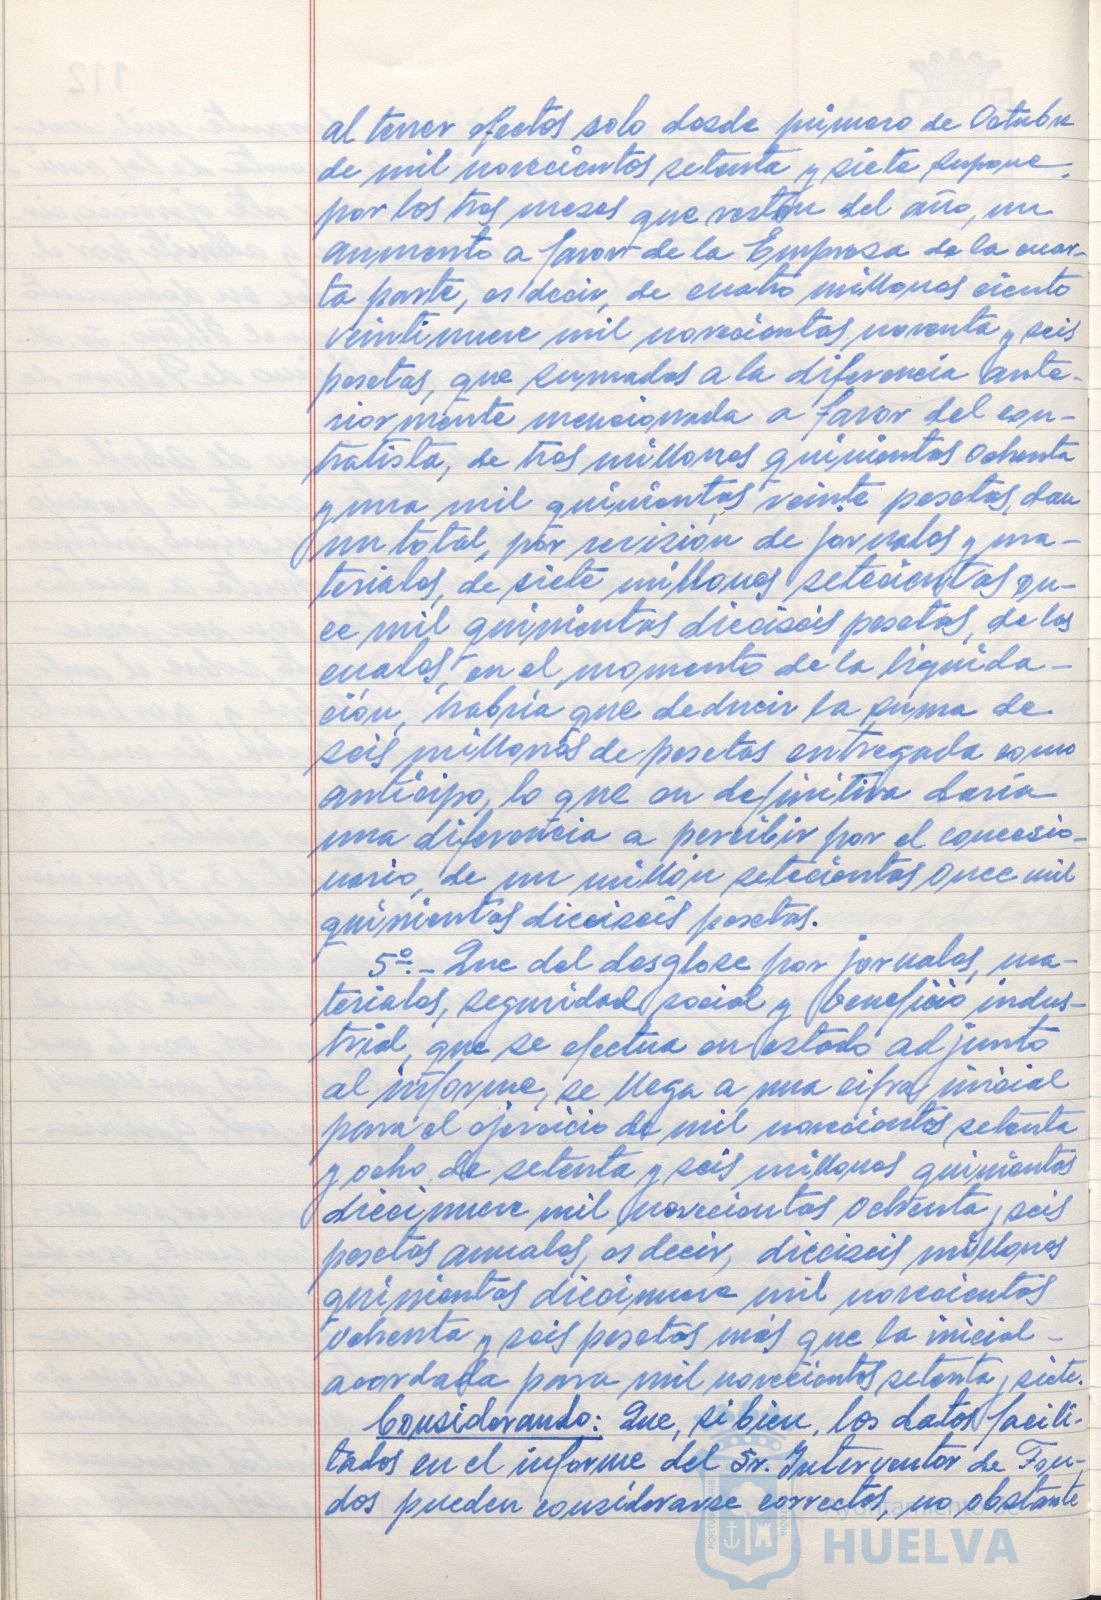 al tener efectos solo desde primero de Octubre
de mil novecientos setenta y siete supone,
por los tres meses que restan del año, un
aumento a favor de la Empresa de la cuar-
ta parte, es decir, de cuatro millones ciento
veintinueve mil novecientas noventa y seis
pesetas, que sumadas a la diferencia ante-
riormente mencionada a favor del con-
tratista, de tres millones quinientas ochenta
y una mil quinientas veinte pesetas, dan
un total, por revisión de jornales y ma-
teriales, de siete millones setecientas on-
ce mil quinientas dieciseis pesetas, de las
cuales, en el momento de la liquida-
ción, habría que deducir la suma de
seis millones de pesetas entregada como
anticipo, lo que en definitiva daría
una diferencia a percibir por el concesio-
nario, de un millón setecientas once mil
quinientas dieciseis pesetas.
5º.- Que del desglose por jornales, ma-
teriales, seguridad social y beneficio indus-
trial, que se efectua en estado adjunto
al informe, se llega a una cifra inicial
para el ejercicio de mil novecientos setenta
y ocho, de setenta y seis millones quinientas
diecinueve mil novecientas ochenta y seis
pesetas anuales, es decir, dieciseis millones
quinientas diecinueve mil novecientas
ochenta y seis pesetas más que la inicial
acordada para mil novecientos setenta y siete.
Considerando: Que, si bien, los datos facili-
tados en el informe del Sr. Interventor de Fon-
dos pueden considerarse correctos, no obstante
Ayuntamiento de
HUELVA